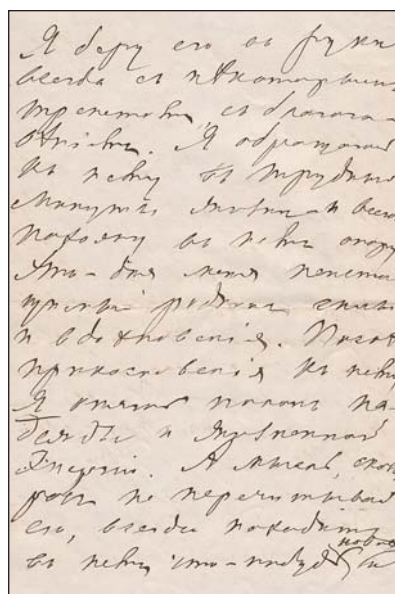 Я беру его въ руки
всегда съ нѣкоторымъ
трепетомъ, съ благого-
вѣніемъ. Я обращаюсь
къ нему въ трудныя
минуты жизни – и всегда
нахожу въ немъ опору
Это – для меня
родникъ силы
и вдохновенія. Послѣ
прикосновенія къ нему
Я опять полонъ на-
дежды и жизненной
Энергіи. А мысль, сколько
разъ не перечитывай
его, всегда находитъ
новое
въ немъ что-нибудь